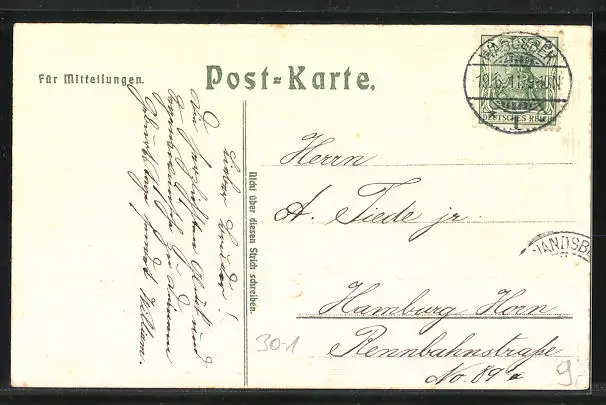 Für Mitteilungen.
Post-Karte.
DEUTSCHES REICH
Lieber Bruder!
Die herzlichsten Glück und
Segenswünsche zu deinem
Geburtstage sendet William.
Nicht über diesen Strich schreiben.
Herrn
A. Tiede jr.
Hamburg Horn
Rennbahnstraße
No. 89a
WANDSB
30-1
9,-